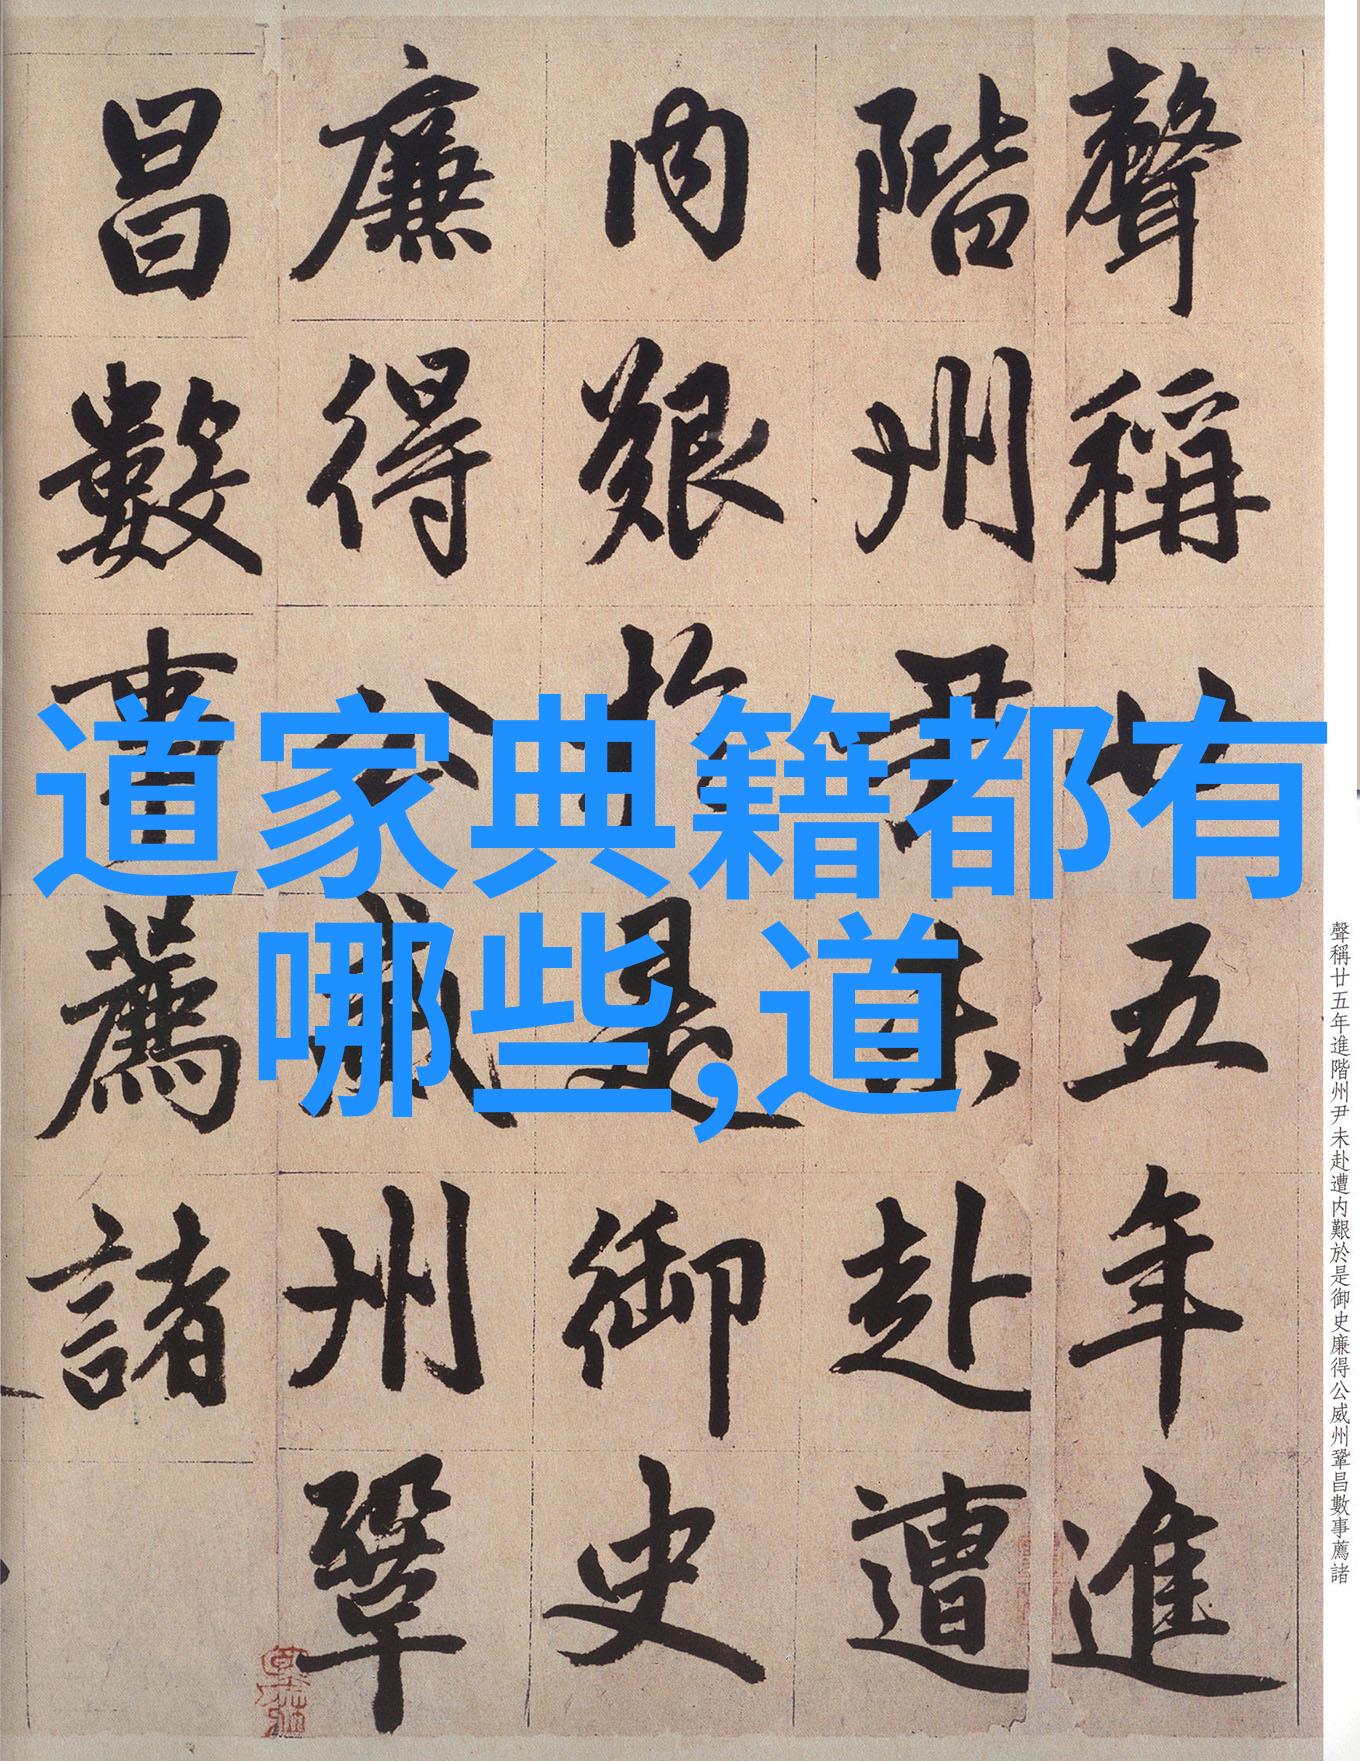 聲稱廿五年進
階州尹未赴遭
内艱於是御史
廉得公威州鞏
昌數事薦諸
道家典籍都有
哪些,道
聲稱廿五年進階州尹未赴遭内艱於是御史廉得公威州鞏昌數事薦諸